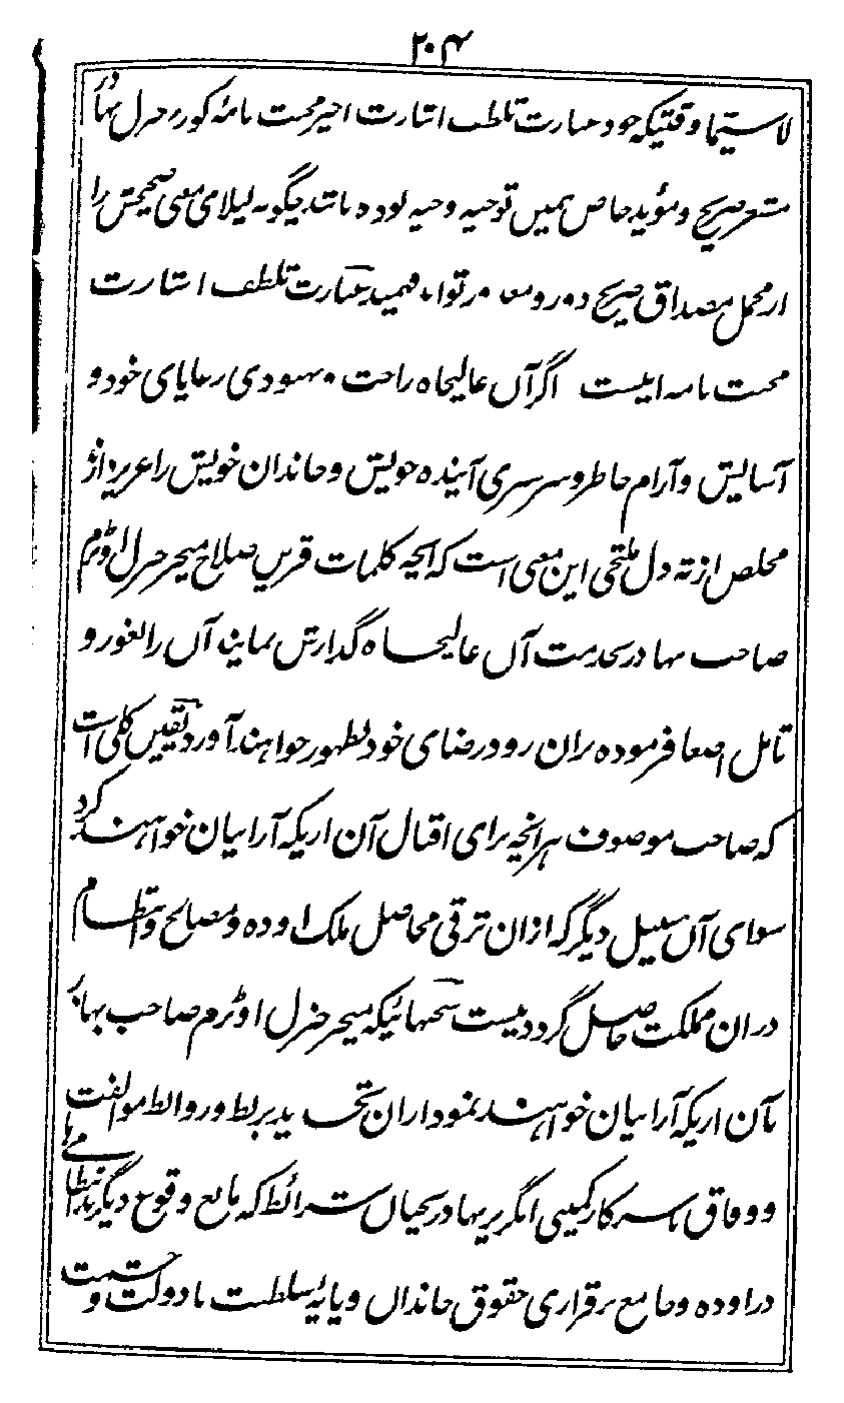 ۲۰۴
لاسیّما وقتیکه خود عبارت تلطف اشارت اخیر محبت نامهٔ گورنر جنرل بهادر
مشعر صریح و مؤید خاص همین توجیه وجیه بوده باشد چگونه لیلای معنی صحیحش را
از محمل مصداق صریح دور و فهمید عبارت تلطف اشارت
محبت نامه اینست اگر آں عالیجاه راحت و بهبودی رعایای خود و
آسایش و آرام خاطر و سرسری آینده خویش و خاندان خویش را عزیز دارند
مخلص از ته دل ملتجی این معنی است که آنچه کلمات قرین صلاح میجر جنرل اوٹرم
صاحب بهادر بخدمت آں عالیجاه گذارش نماینه آں را بغور و
تامل اصغا فرموده بران رو در رضای خود بظهور خواهند آورد یقین کلی است
که صاحب موصوف هر آنچه برای اقبال آن اریکه آرا بیان خواهند کرد
سوای آں سبیل دیگر که ازان ترقی محاصل ملک اوده و مصالح و انتظام
دران مملکت حاصل گردد نیست سخنهائیکه میجر جنرل اوٹرم صاحب بهادر
بآن اریکه آرا بیان خواهند نمود اران تجدید بربط و روابط موالفت
و وفاق با سرکار کمپنی انگریز بهادر بچناں شرائط که مانع وقوع دیگر بد انتظامی ها
در اوده و جامع برقراری حقوق خانداں و پایهٔ سلطنت با دولت و حشمت